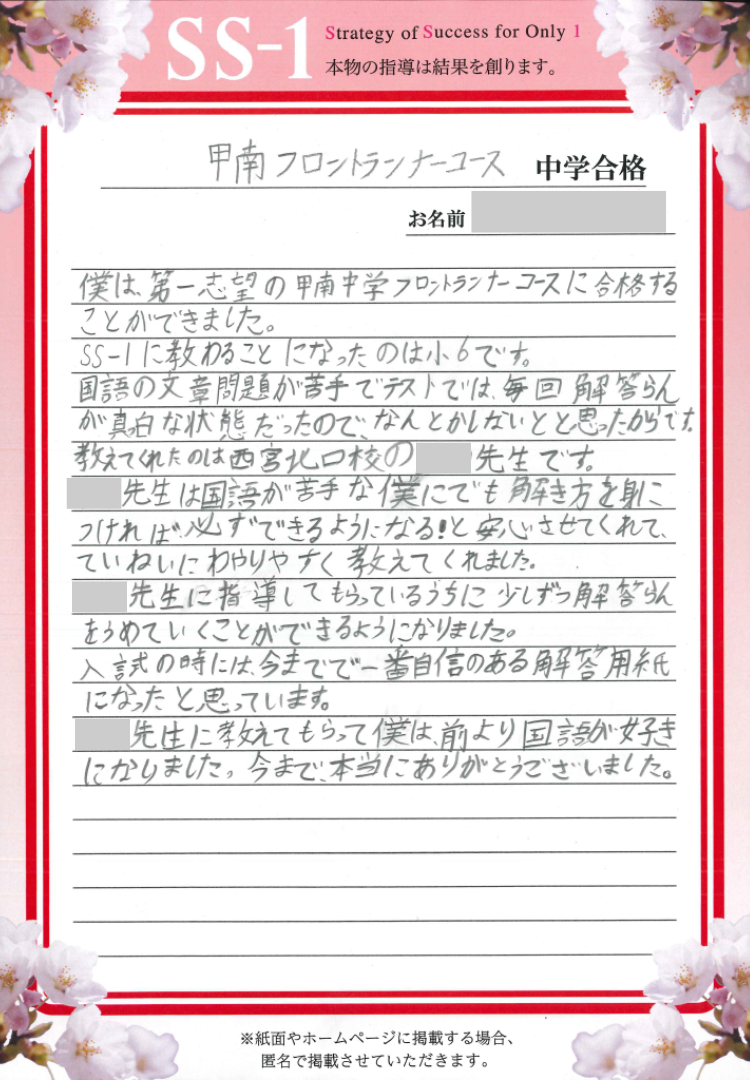 SS-1
Strategy of Success for Only 1
本物の指導は結果を創ります。
甲南フロントランナーコース 中学合格
お名前
僕は、第一志望の甲南中学フロントランナーコースに合格する
ことができました。
SS-1に教わることになったのは小6です。
国語の文章問題が苦手でテストでは、毎回解答らん
が真白な状態だったので、なんとかしないとと思ったからです。
教えてくれたのは西宮北口校の 先生です。
先生は国語が苦手な僕にでも解き方を身に
つければ、必ずできるようになる!と安心させてくれて、
ていねいにわやりやすく教えてくれました。
先生に指導してもらっているうちに少しずつ解答らん
をうめていくことができるようになりました。
入試の時には、今までで一番自信のある解答用紙
になったと思っています。
先生に教えてもらって僕は、前より国語が好き
になりました。今まで、本当にありがとうございました。
※紙面やホームページに掲載する場合、
匿名で掲載させていただきます。